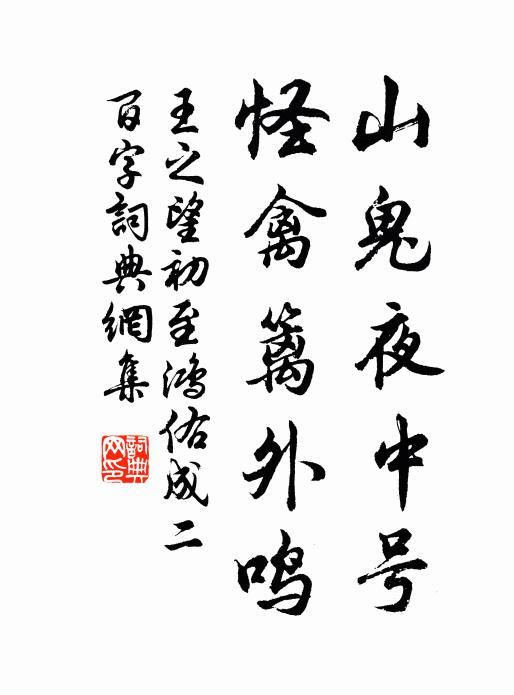 山鬼夜中号
怪禽篱外鸣
王之望初至鴻佑成二
百字詞典網集
詞典网印